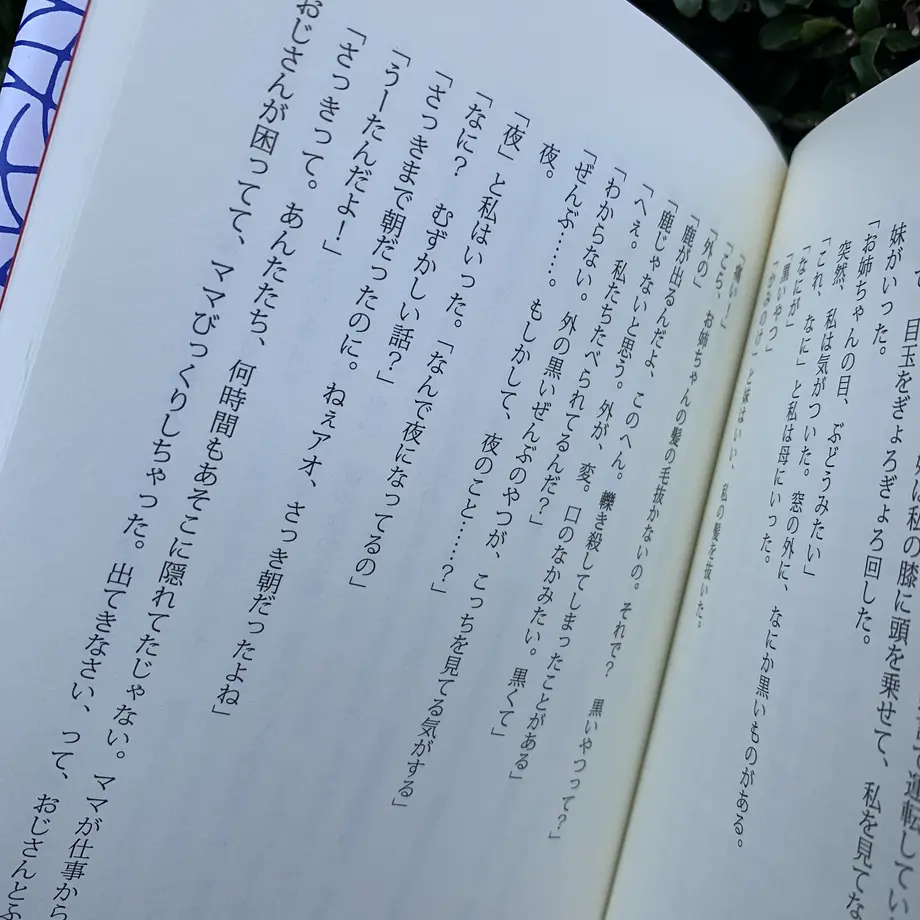 は私の膝に頭を乗せて、私を見てな
目玉をぎょろぎょろ回した。
妹がいった。
「お姉ちゃんの目、ぶどうみたい」
突然、私は気がついた。窓の外に、なにか黒いものがある。
「これ、なに」と私は母にいった。
「なにが」
「黒いやつ」
「かみのけ」と妹はいい、私の髪を抜いた。
「痛い！」
「こら、お姉ちゃんの髪の毛抜かないの。それで？　黒いやつって？」
「外の」
「鹿が出るんだよ、このへん。轢き殺してしまったことがある」
「鹿じゃないと思う。外が、変。口のなかみたい。黒くて」
「へえ。私たちたべられてるんだ？」
「わからない。外の黒いぜんぶのやつが、こっちを見てる気がする」
「ぜんぶ……。もしかして、夜のこと……？」
夜。
「夜」と私はいった。「なんで夜になってるの」
「なに？　むずかしい話？」
「さっきまで朝だったのに。ねぇアオ、さっき朝だったよね」
「うーたんだよ！」
「さっきって。あんたたち、何時間もあそこに隠れてたじゃない。ママが仕事から
おじさんが困ってて、ママびっくりしちゃった。出てきなさい、って、おじさんとふ